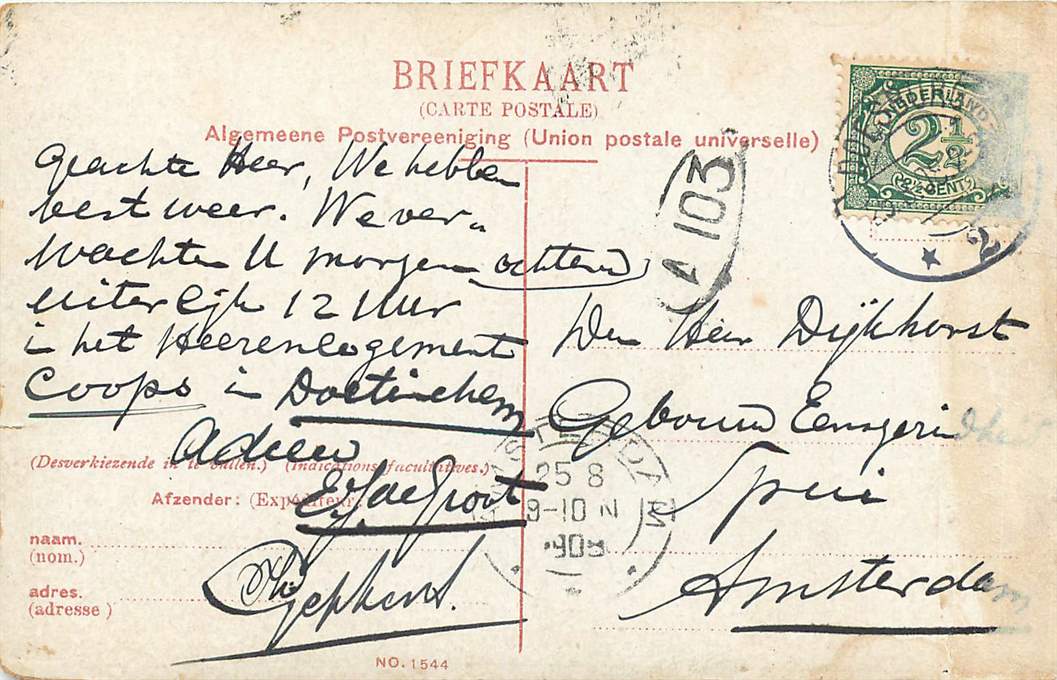 BRIEFKAART
(CARTE POSTALE)
Algemeene Postvereeniging (Union postale universelle)
Geachte Heer, We hebben
best weer. We ver-
wachten U morgen ochtend
uiterlijk 12 Uur
in het Heerenlogement
Coops in Doetinchem
Adieu
(Desverkiezende in te vullen.) (Indications facultatives.)
Afzender: (Expéditeur)
naam.
(nom.)
adres.
(adresse)
NO. 1544
A 103
NEDERLAND
2 1/2
(2½ CENT)
2
Den Heer Dijkhorst
Gebouw Eensgezindheid
Spui
Amsterdam
AMSTERDAM
25 8
9-10 N
908